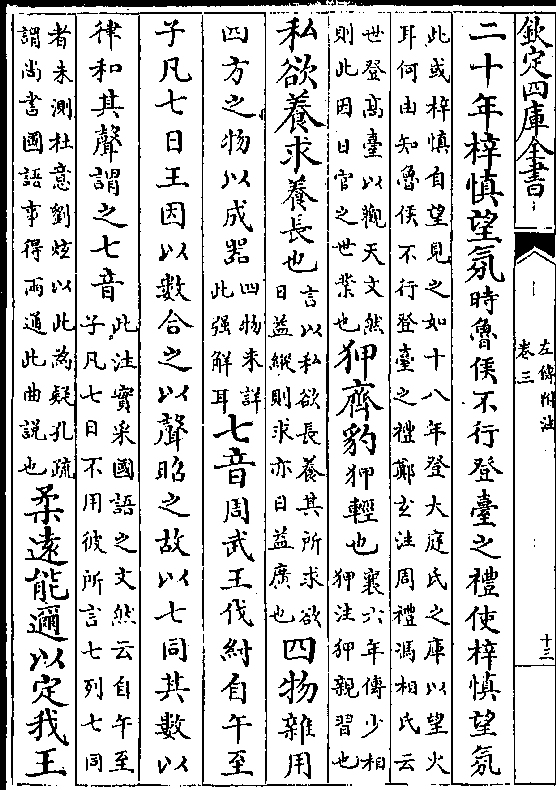 欽定四庫全書
左傳附注
卷三
十三
二十年梓慎望氛時魯侯不行登臺之禮使梓慎望氛
此或梓慎自望見之如十八年登大庭氏之庫以望火
耳何由知魯侯不行登臺之禮鄭玄注周禮馮相氏云
世登高臺以觀天文然
則此因日官之世業也
狎齊豹狎輕也
襄六年傳少相
狎注狎親習也
私欲養求養長也
言以私欲長養其所求欲
日益縱則求亦日益廣也
四物雜用
四方之物以成器
四物未詳
此强解耳
七音周武王伐紂自午至
子凡七日王因以數合之以聲昭之故以七同其數以
律和其聲謂之七音
此注實采國語之文然云自午至
子凡七日不用彼所言七列七同
者未測杜意劉炫以此為疑孔疏
謂尚書國語事得兩通此曲說也
柔遠能邇以定我王